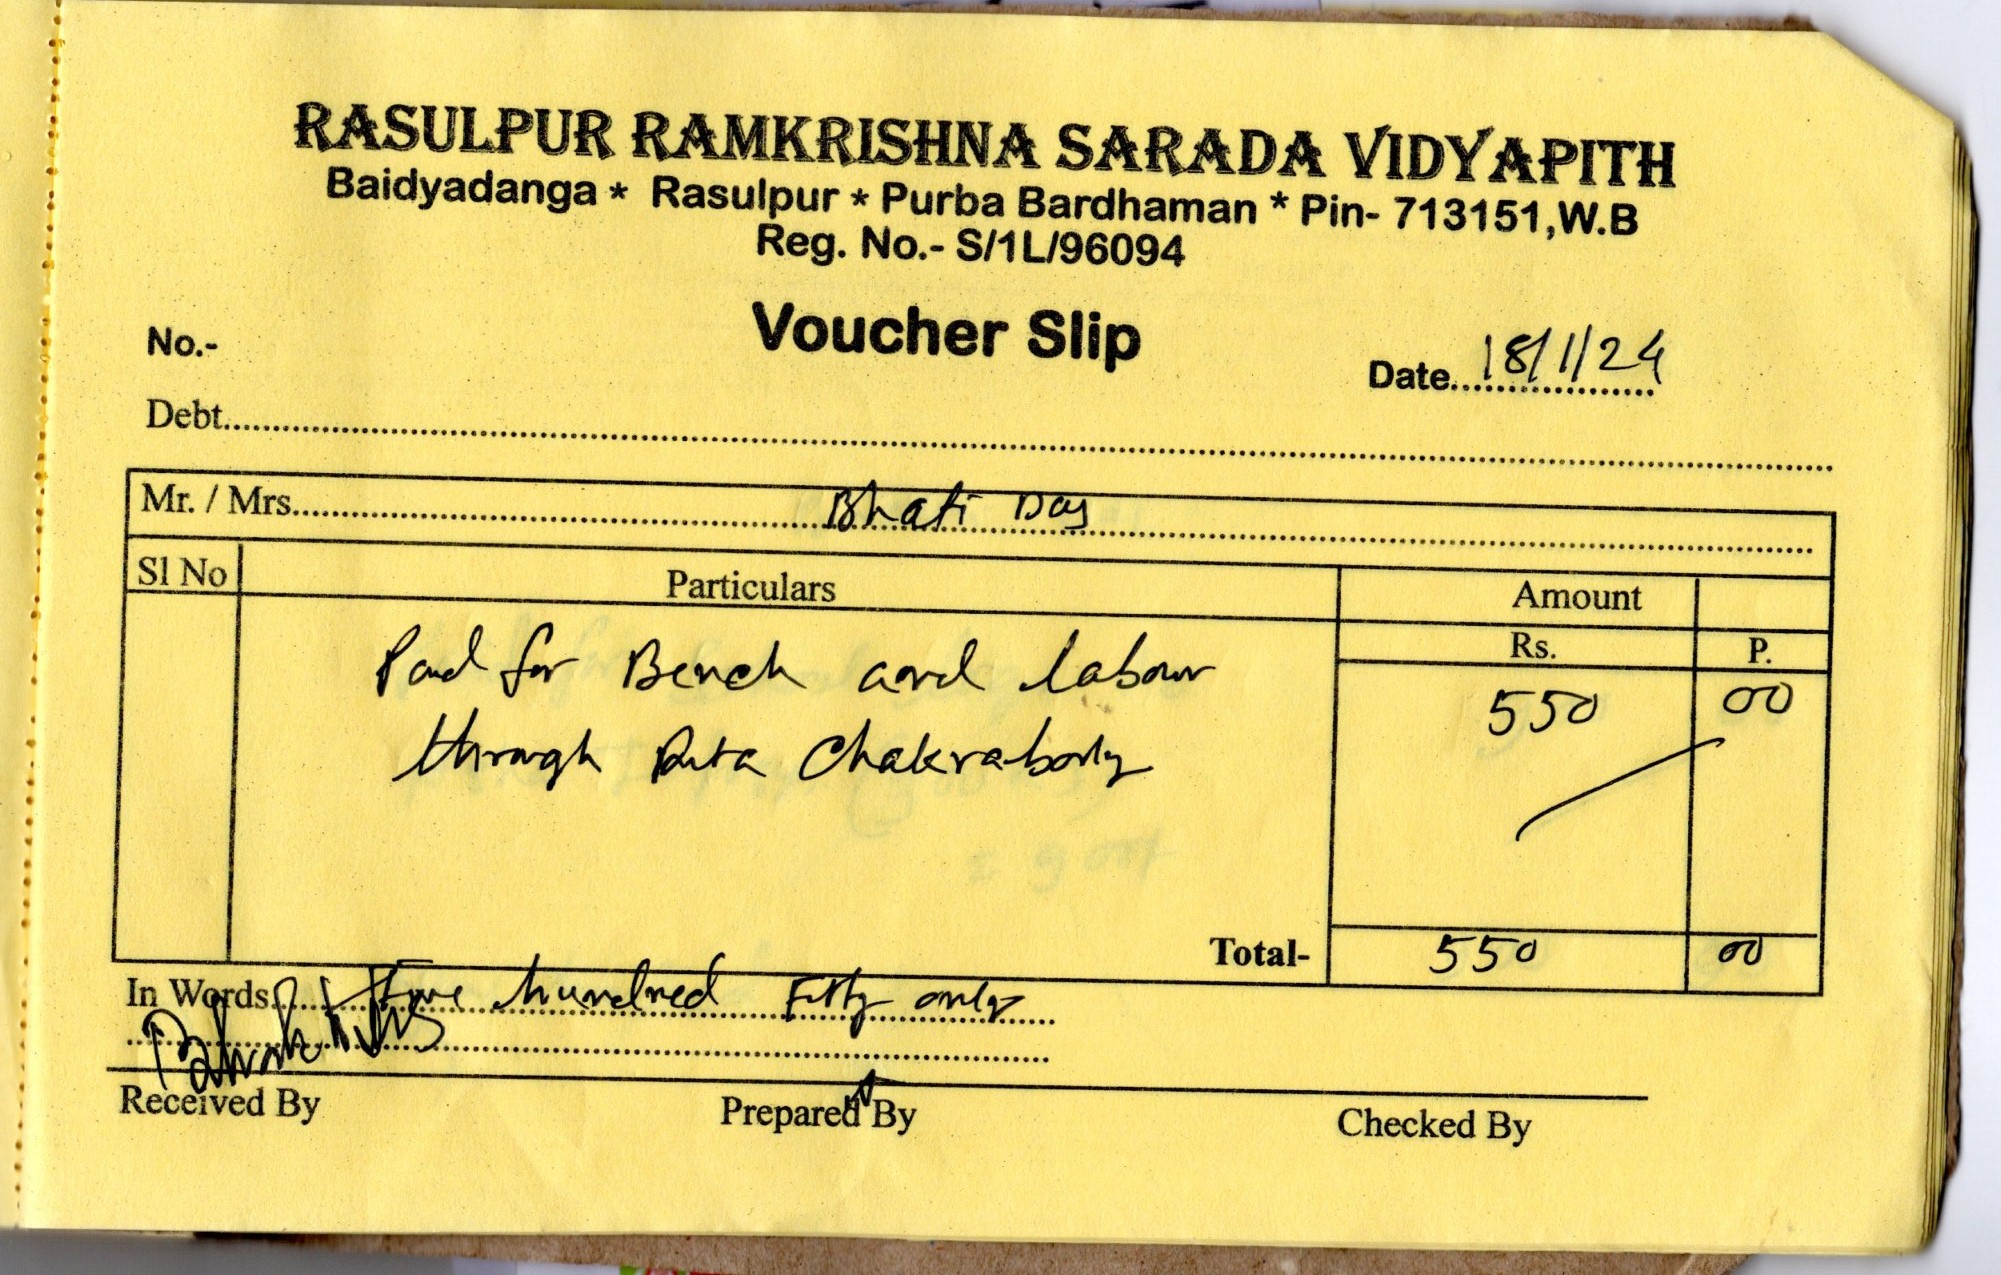 RASULPUR RAMKRISHNA SARADA VIDYAPITH
Baidyadanga * Rasulpur * Purba Bardhaman * Pin- 713151,W.B
Reg. No.- S/1L/96094
Voucher Slip
No.-
Date..... 18/1/24
Debt.....
Mr. / Mrs..... Bhati Das
Sl No Particulars Amount
Rs. P.
Paid for Bench and labour 550 00
through Rita Chakraborty
Total- 550 00
In Words..... Five hundred Fifty only
Received By Prepared By Checked By